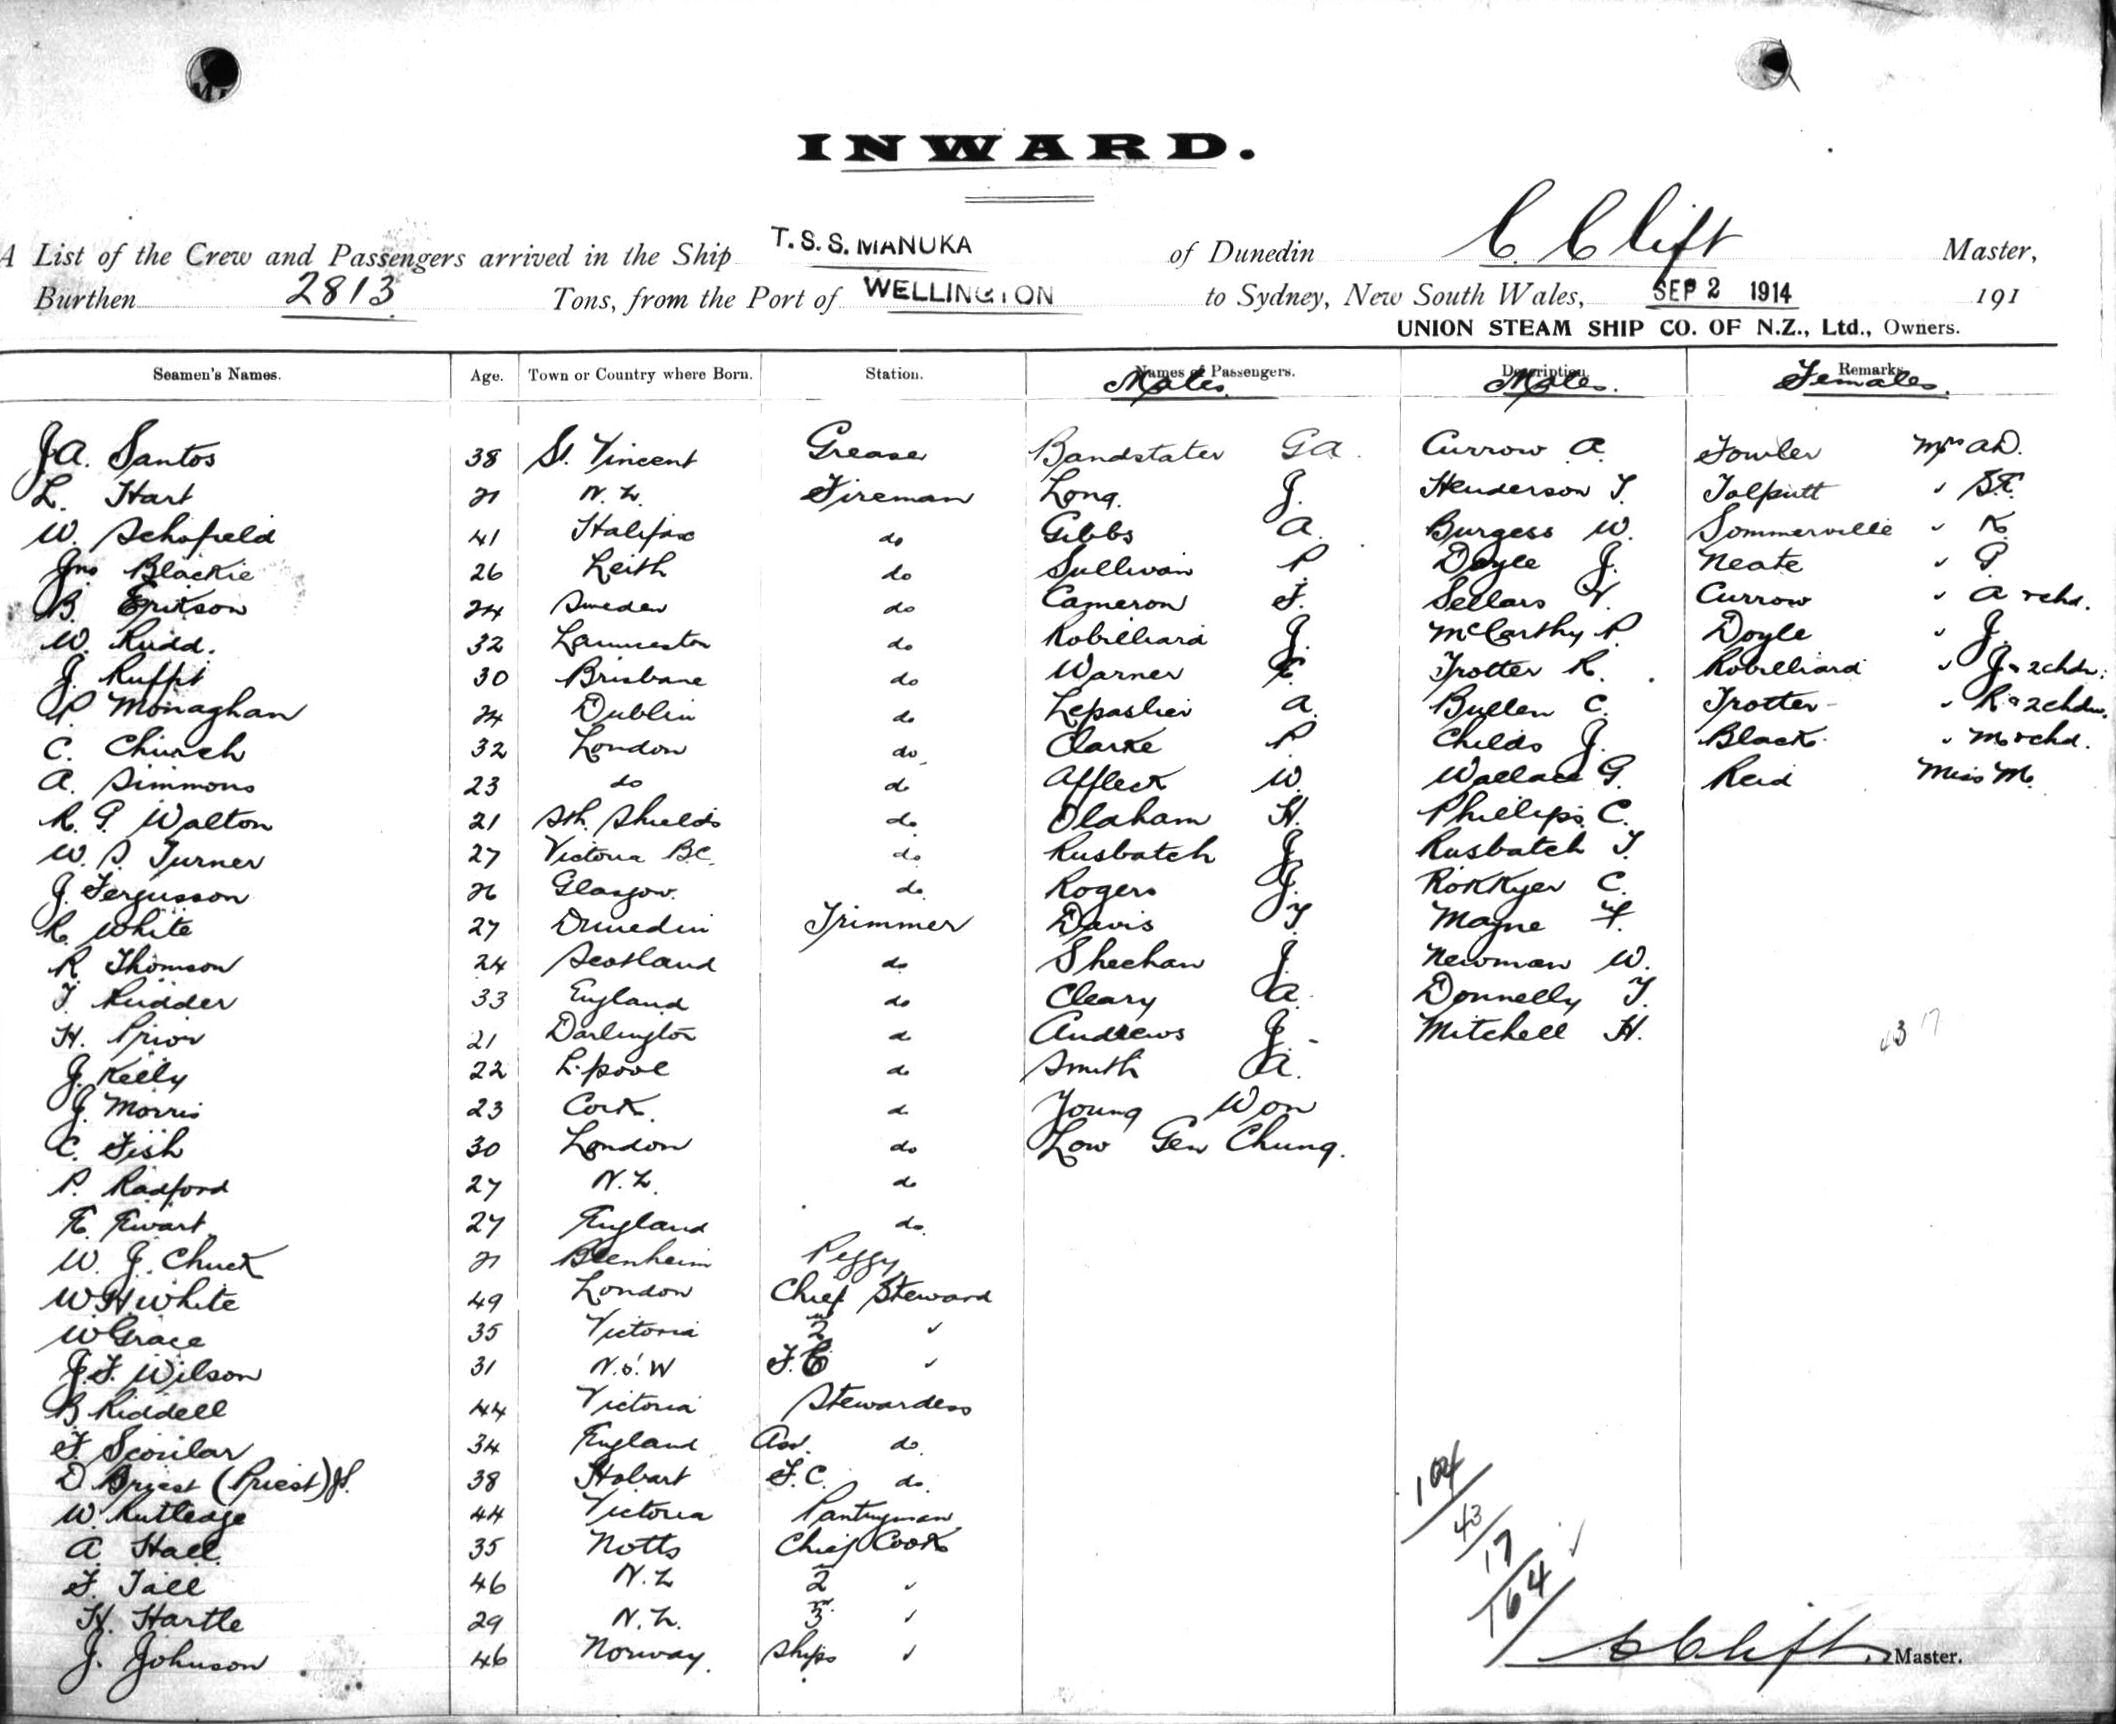 INWARD.
A List of the Crew and Passengers arrived in the Ship T.S.S. MANUKA of Dunedin C. Clift Master,
Burthen 2813 Tons, from the Port of WELLINGTON to Sydney, New South Wales, SEP 2 1914 191
UNION STEAM SHIP CO. OF N.Z., Ltd., Owners.
Seamen's Names. Age. Town or Country where Born. Station. Names of Passengers. Description. Remarks.
Males. Males. Females.
J.A. Santos 38 St. Vincent Greaser Bandstater G A. Currow A. Fowler Mrs A.D.
L. Hart 21 N.Z. Fireman Long. J. Henderson T. Talputt " 
W. Schofield 41 Halifax do Gibbs A. Burgess W. Sommerville " K.
Jno Blackie 26 Leith do Sullivan P Doyle J. Neate " G
B. Erikson 24 Sweden do Cameron F. Sellars V. Currow " A + chd.
W. Rudd. 32 Launceston do Robilliard J. McCarthy P. Doyle " J.
J. Ruffit 30 Brisbane do Warner E. Trotter R. Robilliard " J + 2 chdn.
P. Monaghan 24 Dublin do A. Bullen C. Trotter " R + 2 chdn.
C. Church 32 London do Clarke P. Childs J. Black " M + chd.
A. Simmons 23 do do Affleck W. Wallace G. Reid Miss M.
R. G. Walton 21 Sth. Shields do Oldham H. Phillips C.
W. S. Turner 27 Victoria B.C. do Rusbatch J. Rusbatch T.
J. Fergusson 26 Glasgow. do Rogers J. Rokkyer C.
R. White 27 Dunedin Trimmer Davis T. Mayne F.
R. Thomson 24 Scotland do Sheehan J. Newman W.
T. Rudder 33 England do Cleary A. Donnelly T.
H. Prior 21 Darlington do Andrews J. Mitchell H. 43 17
J. Kelly 22 L.pool do Smith A.
J. Morris 23 Cork. do Young Won
C. Fish 30 London do Low Gen Chung.
P. Radford 27 N.Z. do
E. Ewart 27 England do
W. J. Chuck 21 Blenheim Peggy
W.H. White 49 London Chief Steward
W Grace 35 Victoria 2nd "
J.F. Wilson 31 N.S.W F.C "
B. Riddell 44 Victoria Stewardess
F. Scoular 34 England Asst. do.
D Bryest (Priest) 38 Hobart F.C. do.
W. Rutledge 44 Victoria Pantryman
A. Hall 35 Notts Chief Cook
F. Tall 46 N.Z 2nd "
H. Hartle 29 N.Z. 3rd "
J. Johnson 46 Norway. Ships "
104
43
17
164
C Clift. Master.